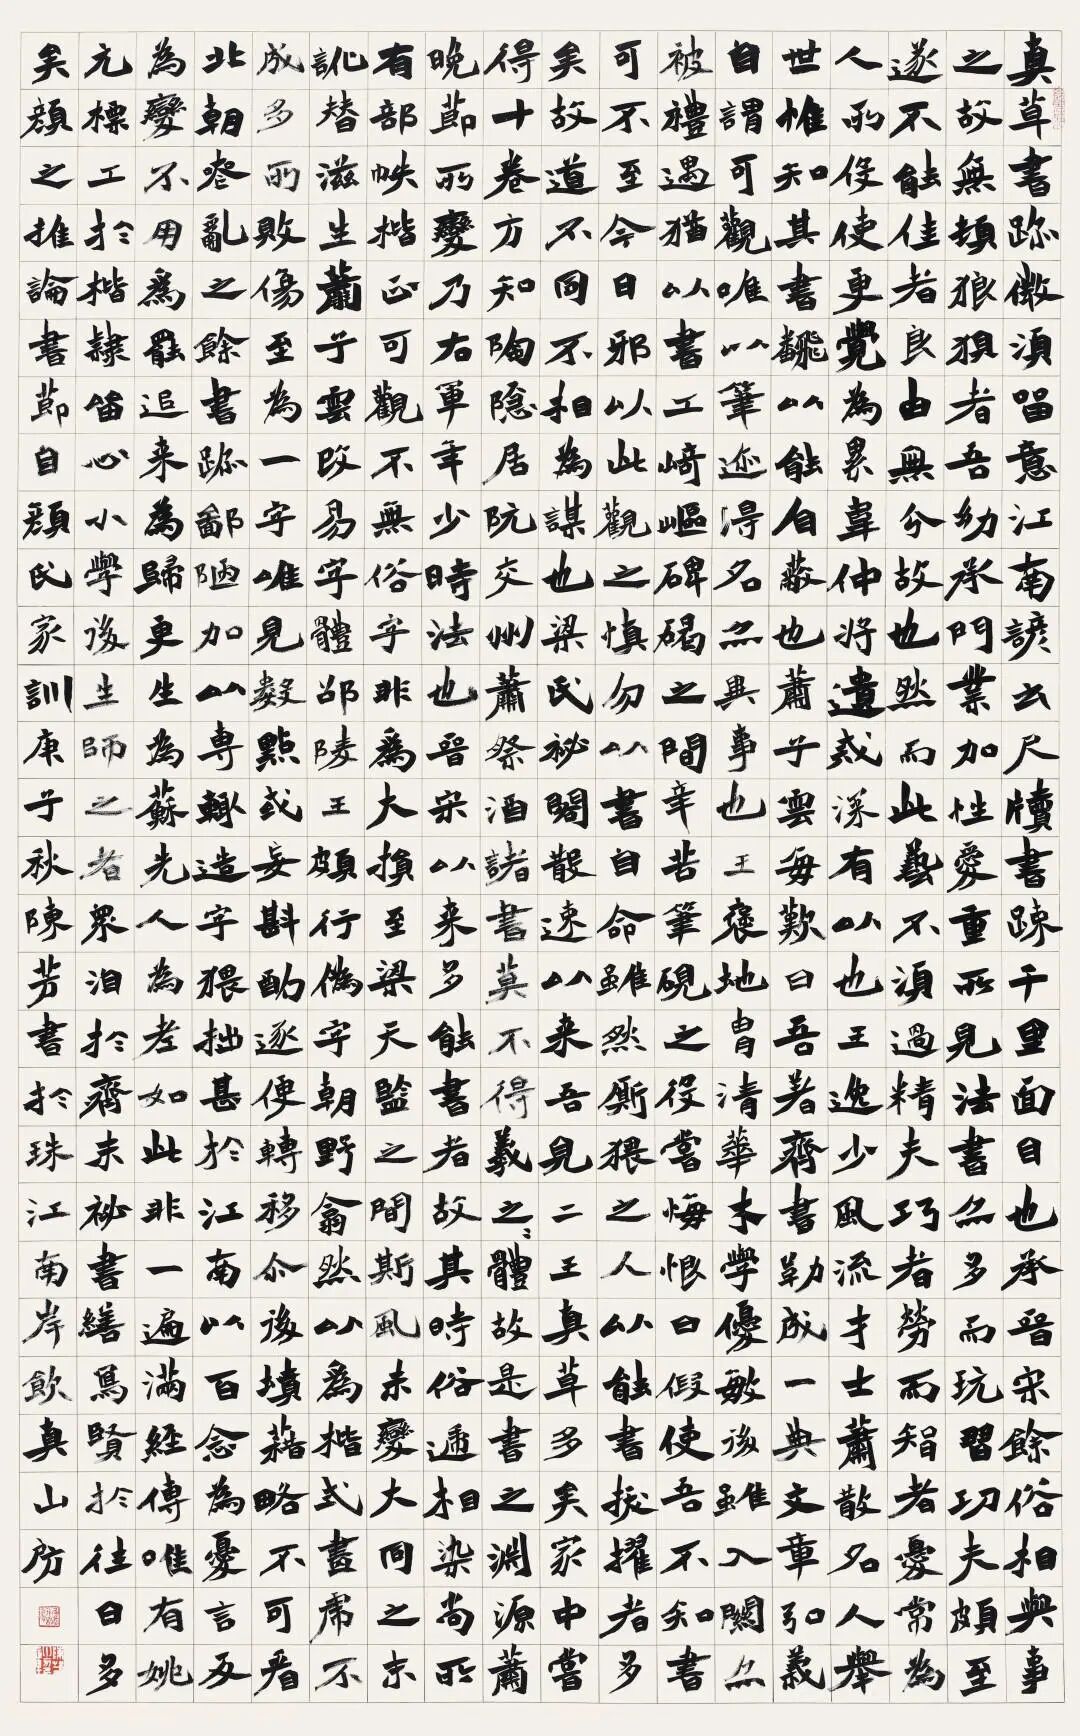 真草書跡微須留意江南諺云尺牘書踈千里面目也承晉宋餘俗相與事
之故無頓狼狽者吾幼承門業加性愛重所見法書亦多而玩習功夫頗至
遂不能佳者良由無分故也然而此藝不須過精夫巧者勞而智者憂常為
人所役使更覺為累韋仲將遺戒深有以也王逸少風流才士蕭散名人舉
世惟知其書翻以能自蔽也蕭子雲每歎曰吾著齊書勒成一典文章弘義
自謂可觀唯以筆迹得名亦異事也王褒地胄清華才學優敏後雖入關亦
被禮遇猶以書工崎嶇碑碣之間辛苦筆硯之役嘗悔恨曰假使吾不知書
可不至今日邪以此觀之慎勿以書自命雖然廝猥之人以能書拔擢者多
矣故道不同不相為謀也梁氏祕閣散速以来吾見二王真草多矣家中嘗
得十卷方知陶隱居阮交州蕭祭酒諸書莫不得羲之〻體故是書之淵源蕭
晚節所變乃右軍年少時法也晉宋以来多能書者故其時俗遞相染尚所
有部帙楷正可觀不無俗字非為大損至梁天監之間斯風未變大同之末
訛替滋生蕭子雲改易字體邵陵王頗行偽字朝野翕然以為楷式畫虎不
成多所敗傷至為一字唯見數點或妄斟酌逐便轉移尒後墳藉略不可看
北朝喪亂之餘書跡鄙陋加以専輒造字猥拙甚於江南以百念為憂言反
為變不用為罷追来為歸更生為蘇先人為老如此非一遍滿經傳唯有姚
元標工於楷隸留心小學後生師之者眾洎於齊末祕書繕寫賢於往日多
矣顏之推論書節自顏氏家訓庚子秋陳芳書於珠江南岸飲真山房